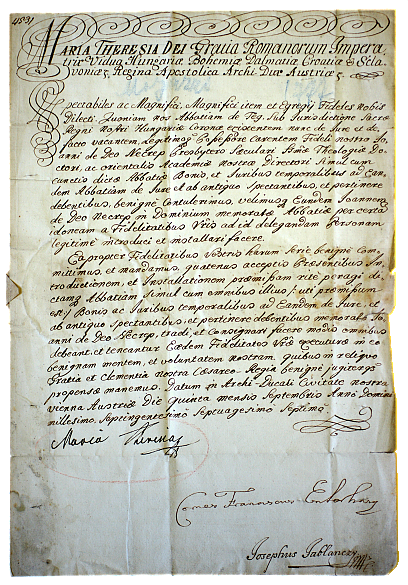 MARIA THERESIA DEI Gratia Romanorum Impera-
trix Vidua, Hungariæ, Bohemiæ Dalmatiæ Croatiæ & Scla-
voniæ & Regina Apostolica Archi Dux Austriæ &
Spectabiles ac Magnifici, Magnifici item et Egregij Fideles nobis
Dilecti. Quoniam nos Abbatiam de Sub Jurisdictione Sacræ
Regni Nostri Hungariæ Coronæ existentem nunc de Jure et de
facto vacantem, legitimoq Possessore carentem Fideli nostro Jo-
anni de Deo Necrep Presbytero Sæculari Theologiæ Do-
ctori, ac orientalis Academiæ nostræ Directori Simul cum
cunctis dictæ Abbatiæ Bonis, et Juribus temporalibus ad Ean-
dem Abbatiam de Jure et ab antiquo Spectantibus, et pertinere
debentibus, benigne Contulerimus, velimusq Eundem Joannem
de Deo Necrep in Dominium memoratæ Abbatiæ per certam
idoneam a Fidelitatibus Vris ad id delegandam Personam
legitime introduci et installari facere.
Eapropter Fidelitatibus Vestris harum Serie benigne Com-
mittimus, et mandamus, quatenus acceptis Præsentibus In-
troductionem, et Installationem præmissam rite peragi di-
ctamq Abbatiam Simul cum omnibus illius, uti præmissum
est Bonis ac Juribus temporalibus ad Eandem de Jure, et
ab antiquo Spectantibus, et pertinere debentibus memorato Jo-
anni de Deo Necrep, tradi, et Consignari facere modis omnibus
debeant, et teneantur Eædem Fidelitates Vræ executuræ in eo
benignam mentem et voluntatem nostram. quibus in reliquo
Gratia et Clementia nostra Cæsareo Regia benigne jugiterq
propensæ manemus. Datum in Archi Ducali Civitate nostra
Vienna Austriæ Die quinta mensis Septembris Anno Domini
millesimo, Septingentesimo Septuagesimo Septimo
Maria Theresia
Comes Franciscus Esterhazy
Josephus Jablanczy